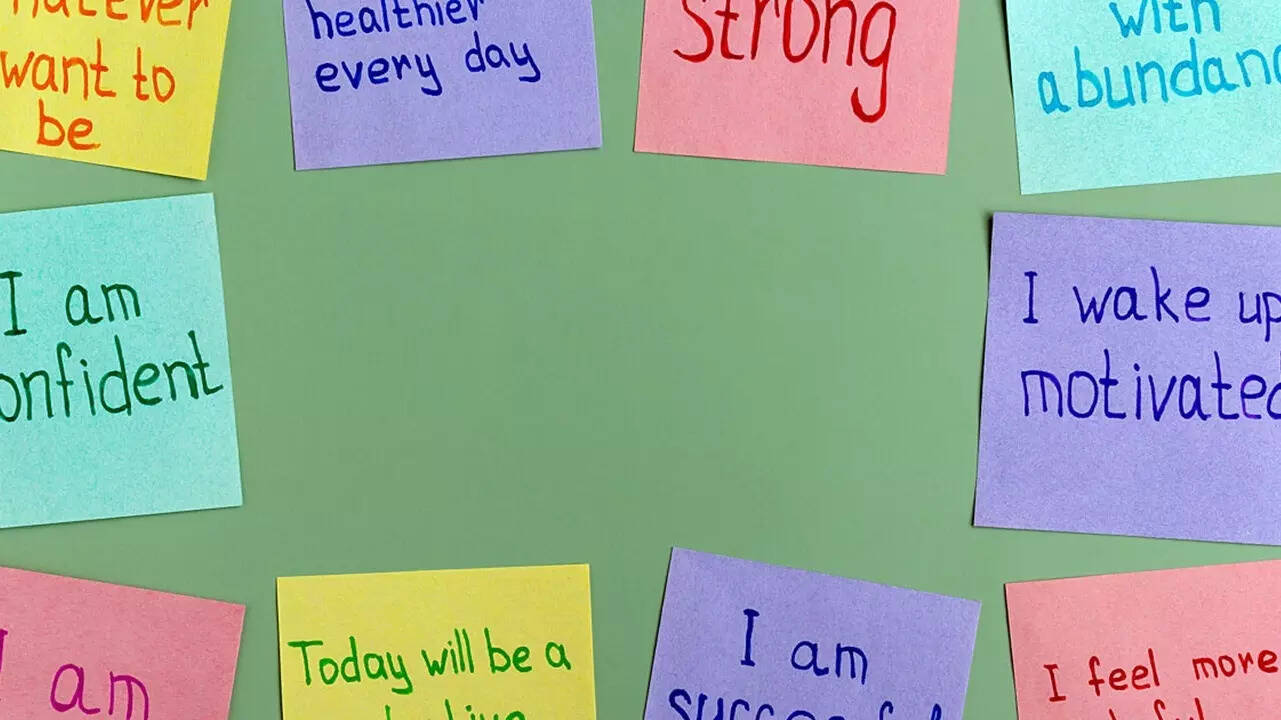 whatever
want to
be
healthier
every day
strong
with
abundanc
I am
onfident
I wake up
motivated
I am
Today will be a
I am
successful
I feel more